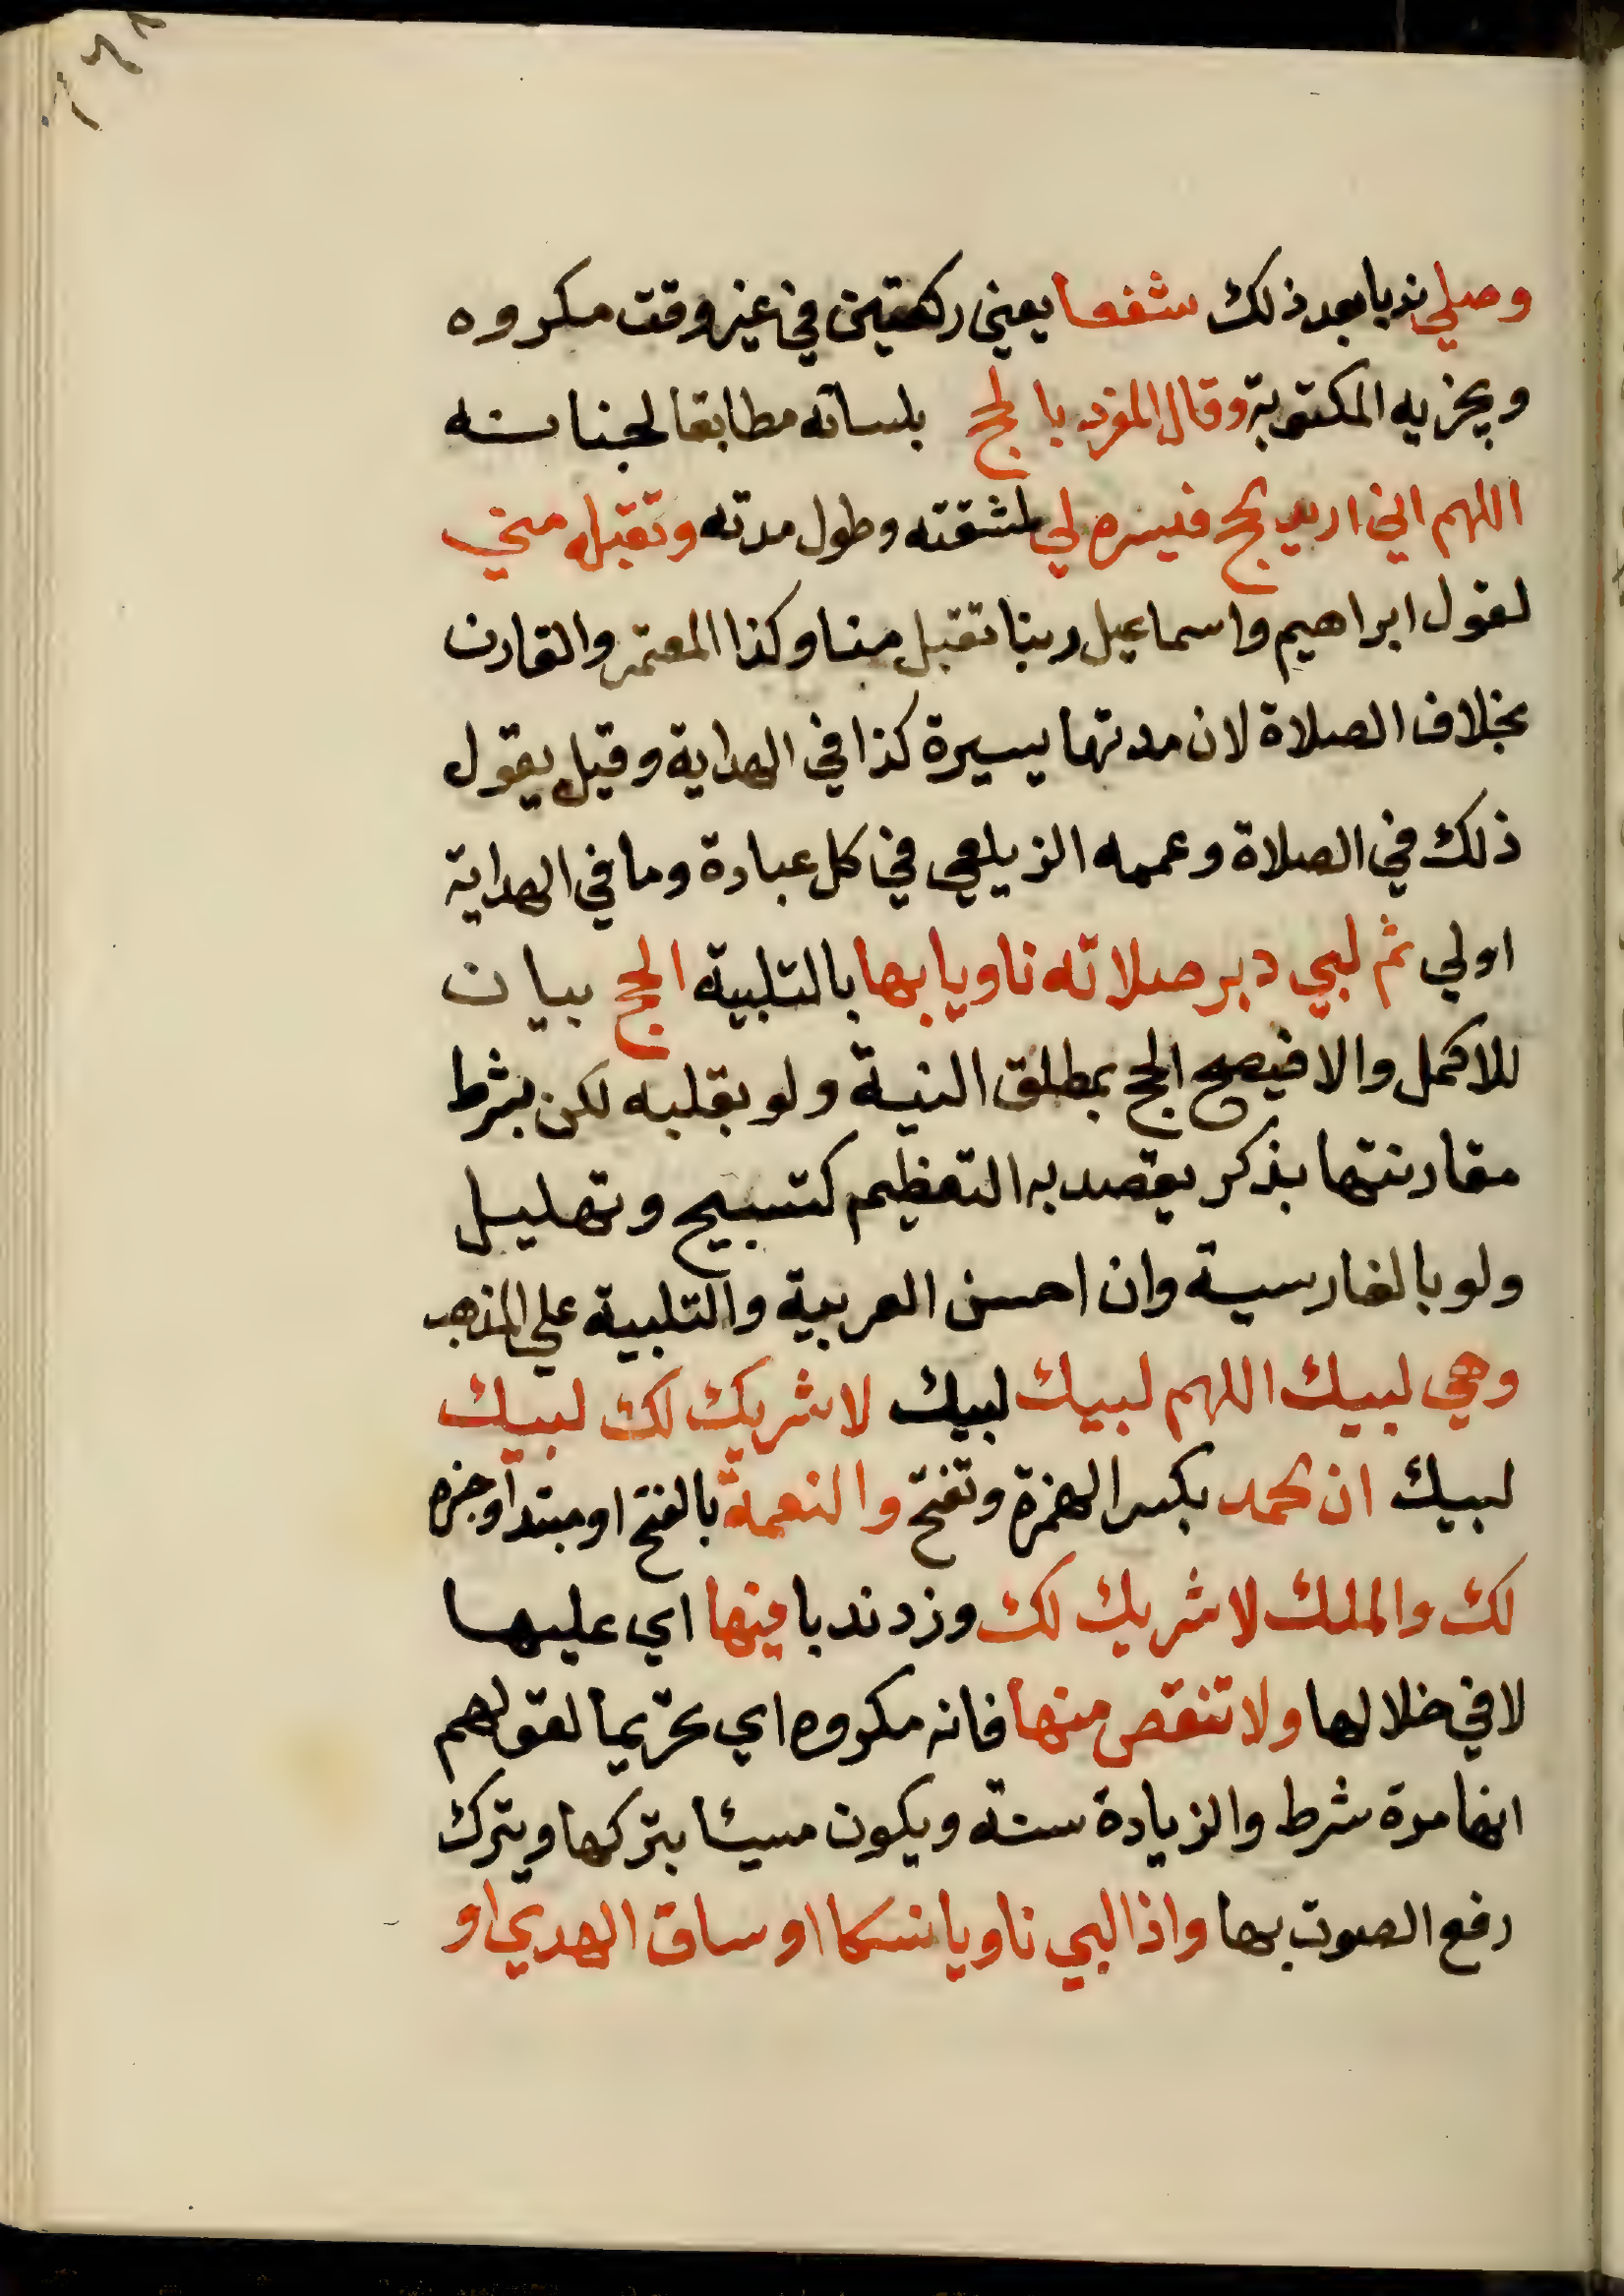 وصلي ندبا بعد ذلك شفعا يعني ركعتين في غير وقت مكروه
ويجزيه المكتوبة وقال المفرد بالحج بلسانه مطابقا لجنانه
اللهم اني اريد الحج فيسره لي لمشقته وطول مدته وتقبله مني
لقول ابراهيم واسماعيل ربنا تقبل منا وكذا المعتمر والقارن
بخلاف الصلاة لان مدتها يسيرة كذا في الهداية وقيل يقول
ذلك في الصلاة وعممه الزيلعي في كل عبادة وما في الهداية
اولي ثم لبي دبر صلاته ناويا بها بالتلبية الحج بيان
للاكمل والا فيصح الحج بمطلق النية ولو بقلبه لكن بشرط
مقارنتها بذكر يقصد به التعظيم كتسبيح وتهليل
ولو بالفارسية وان احسن العربية والتلبية علي المذهب
وهي لبيك اللهم لبيك لبيك لا شريك لك لبيك
لبيك ان الحمد بكسر الهمزة وتفتح والنعمة بالفتح او مبتدا وخبره
لك والملك لا شريك لك وزد ندبا فيها اي عليها
لا في خلالها ولا تنقص منها فانه مكروه اي تحريما لقولهم
انها مرة شرط والزيادة سنة ويكون مسيئا بتركها ويترك
رفع الصوت بها واذا لبي ناويا نسكا او ساق الهدي او